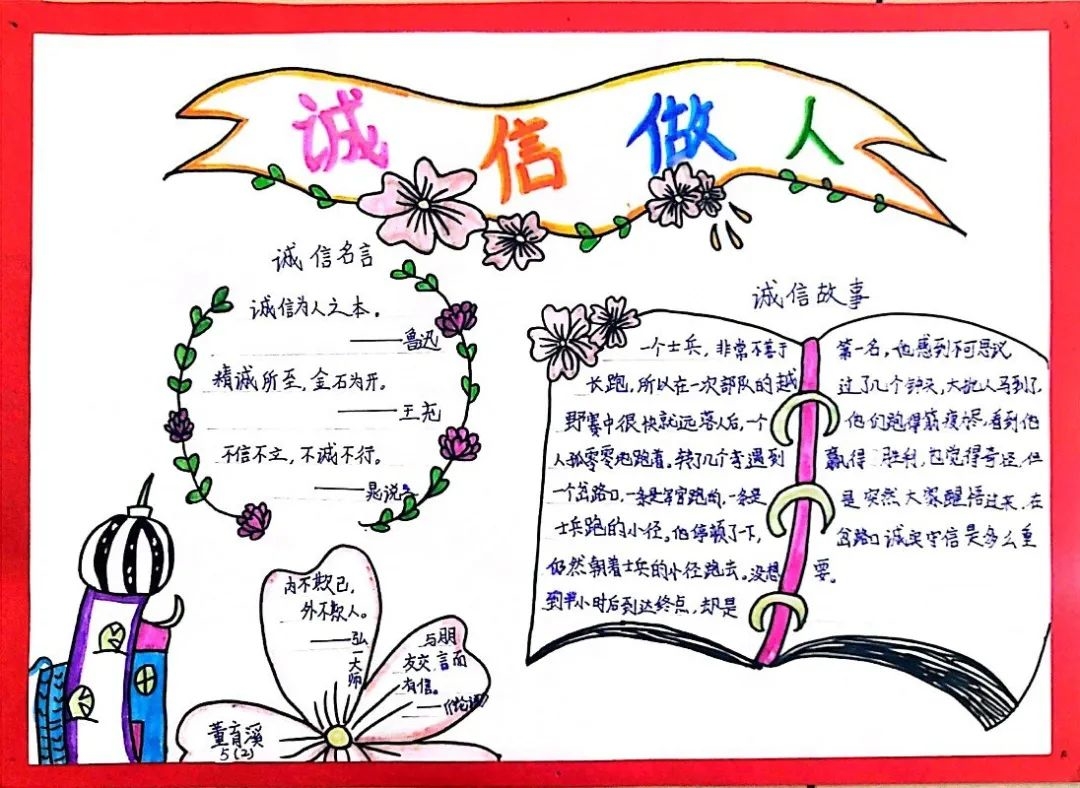 诚信做人
诚信名言
诚信为人之本。
——鲁迅
精诚所至，金石为开。
——王充
不信不立，不诚不行。
——晁说之
内不欺己，
外不欺人。
——弘一大师
与朋
友交，言而
有信。
——《论语》
董育溪
5(2)
诚信故事
一个士兵，非常不善于
长跑，所以在一次部队的越
野赛中很快就远落人后，一个
人孤零零地跑着。转了几个弯遇到
一个岔路口，一条是军官跑的，一条是
士兵跑的小径。他停顿了一下，
仍然朝着士兵的小径跑去。没想
到半小时后到达终点，却是
第一名，他感到不可思议
过了几个钟头，大批人马到了，
他们跑得筋疲力尽，看到他
赢得 胜利，也觉得奇怪，但
是突然大家醒悟过来，在
岔路口诚实守信是多么重
要。